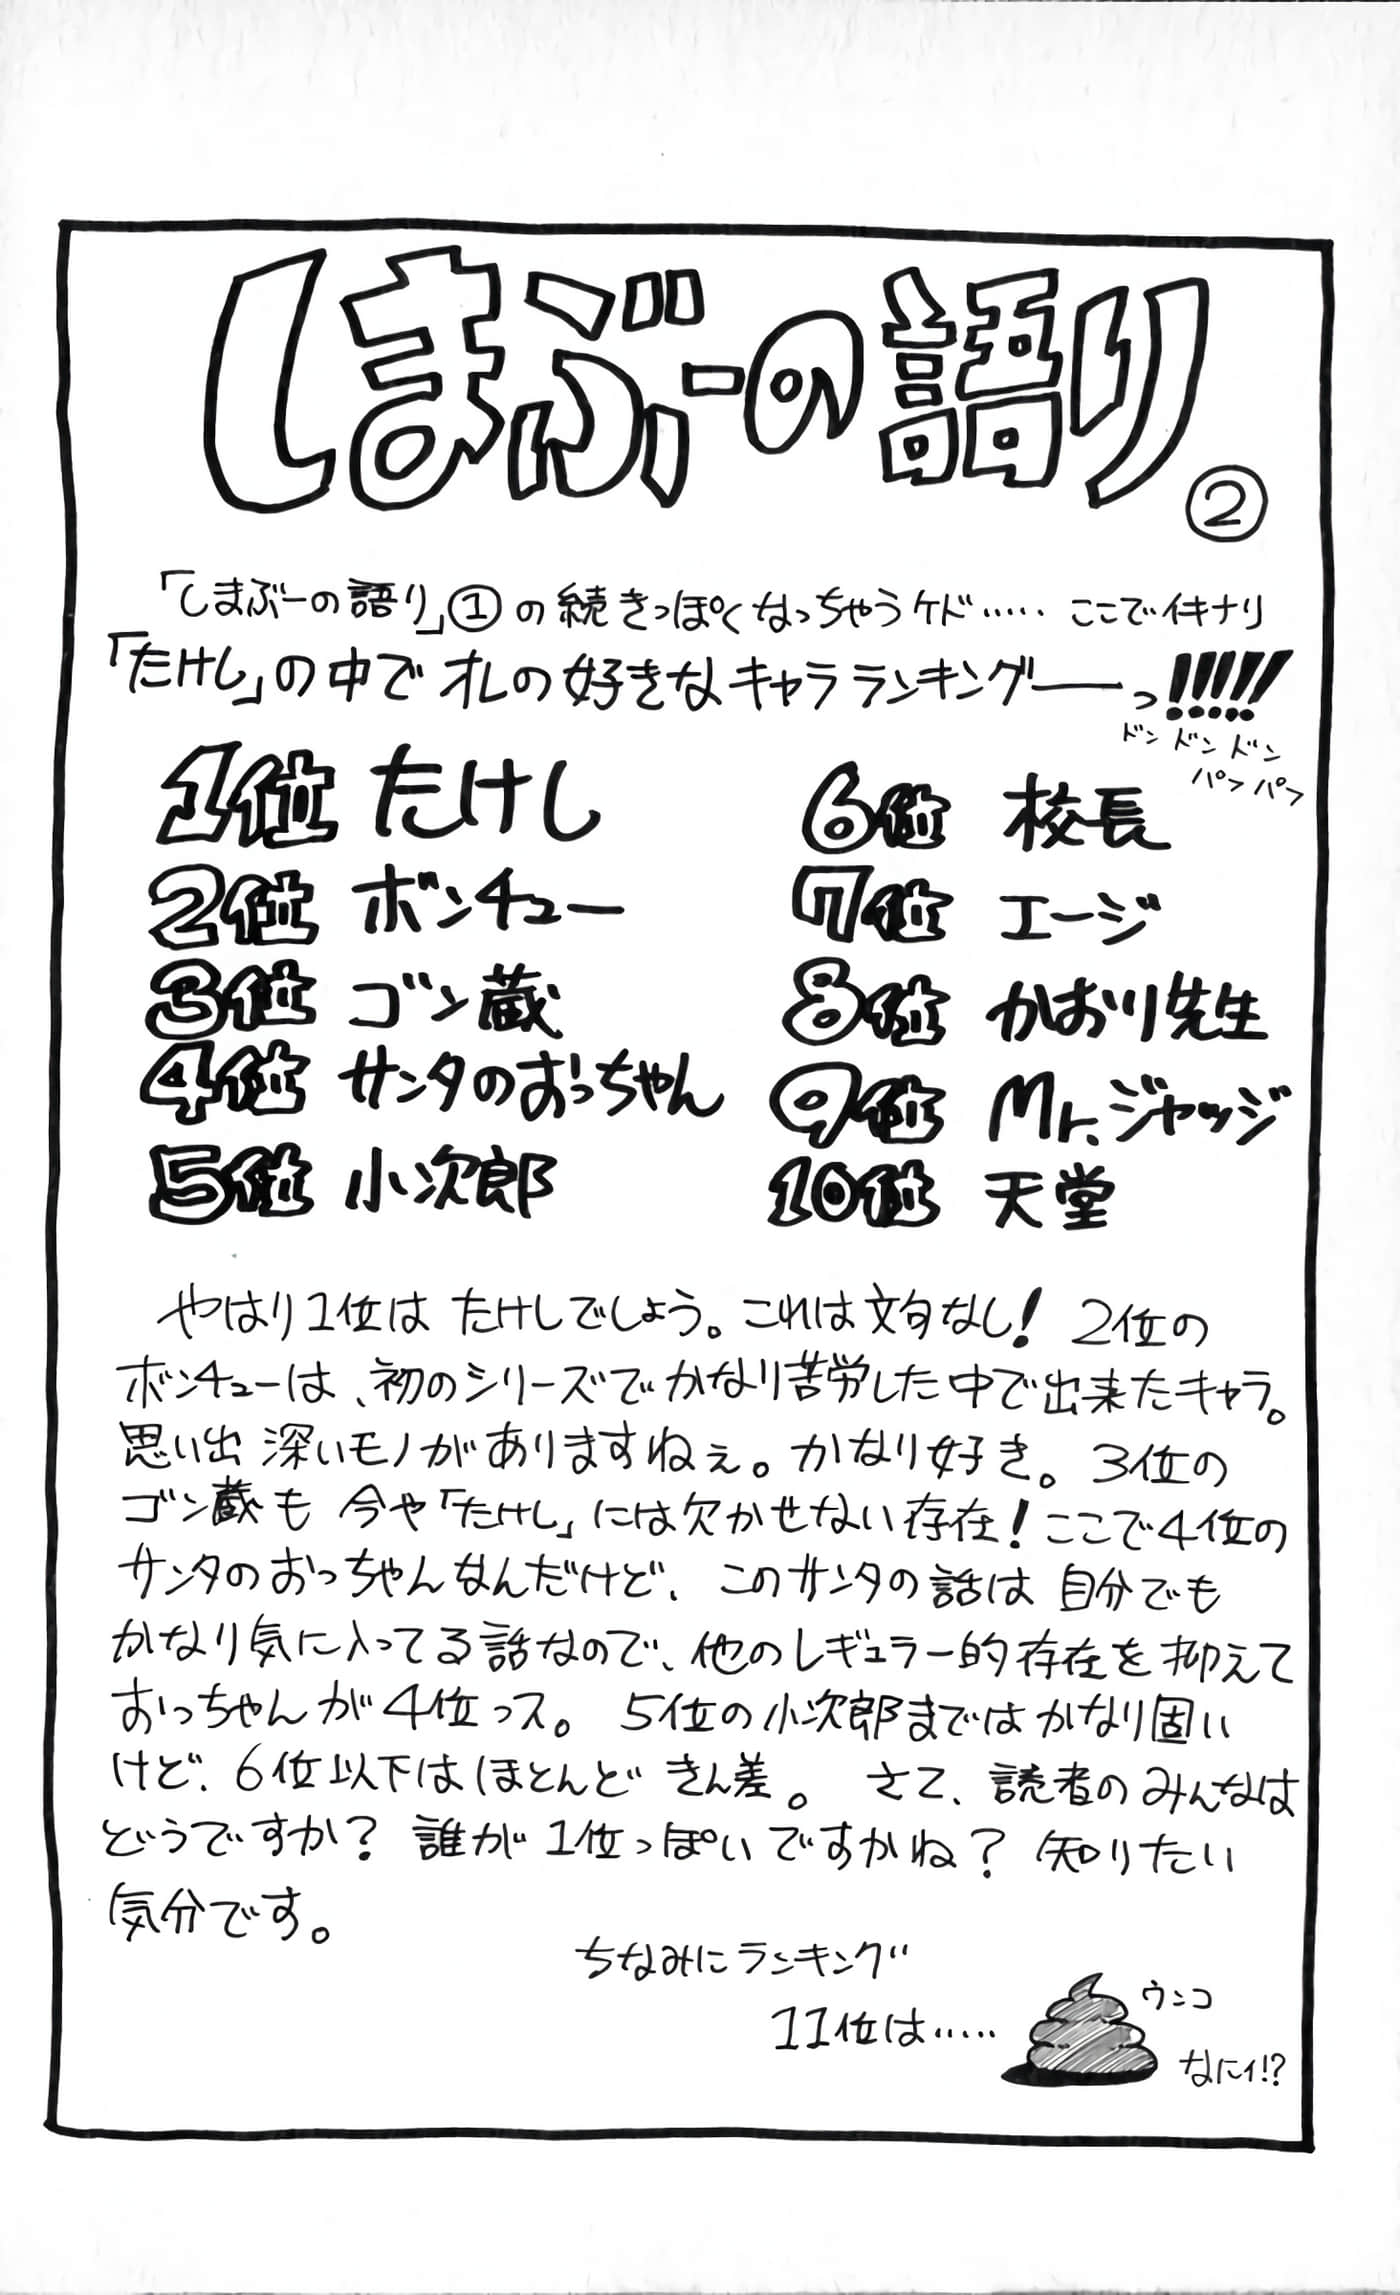 しまぶーの語り②
「しまぶーの語り」①の続きっぽくなっちゃうケド‥‥‥ここでイキナリ
「たけし」の中でオレの好きなキャラランキングーーっ!!!!!
ドンドンドン
パフパフ
1位 たけし
2位 ボンチュー
3位 ゴン蔵
4位 サンタのおっちゃん
5位 小次郎
6位 校長
7位 エージ
8位 かおり先生
9位 Mr.ジャッジ
10位 天堂
やはり1位はたけしでしょう。これは文句なし! 2位の
ボンチューは、初のシリーズでかなり苦労した中で出来たキャラ。
思い出深いモノがありますねぇ。かなり好き。3位の
ゴン蔵も今や「たけし」には欠かせない存在!ここで4位の
サンタのおっちゃんなんだけど、このサンタの話は自分でも
かなり気に入ってる話なので、他のレギュラー的存在を抑えて
おっちゃんが4位っス。5位の小次郎まではかなり固い
けど、6位以下はほとんどきん差。さて、読者のみんなは
どうですか?誰が1位っぽいですかね?知りたい
気分です。
ちなみにランキング
11位は‥‥‥
ウンコ
なにィ!?